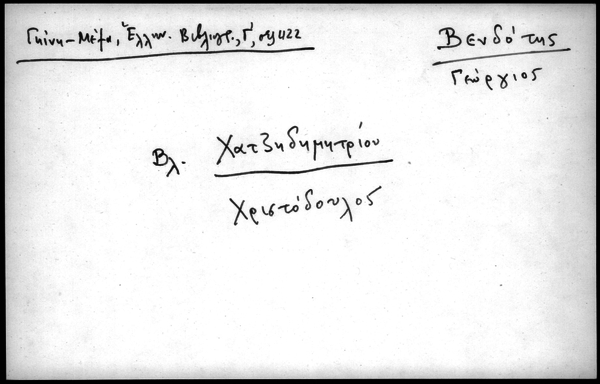 Γκίνη-Μέξα, Ἑλλην. Βιβλιογρ., Γ', σελ 422
Βενδότης
Γεώργιος
Βλ. Χατζηδημητρίου
Χριστόδουλος